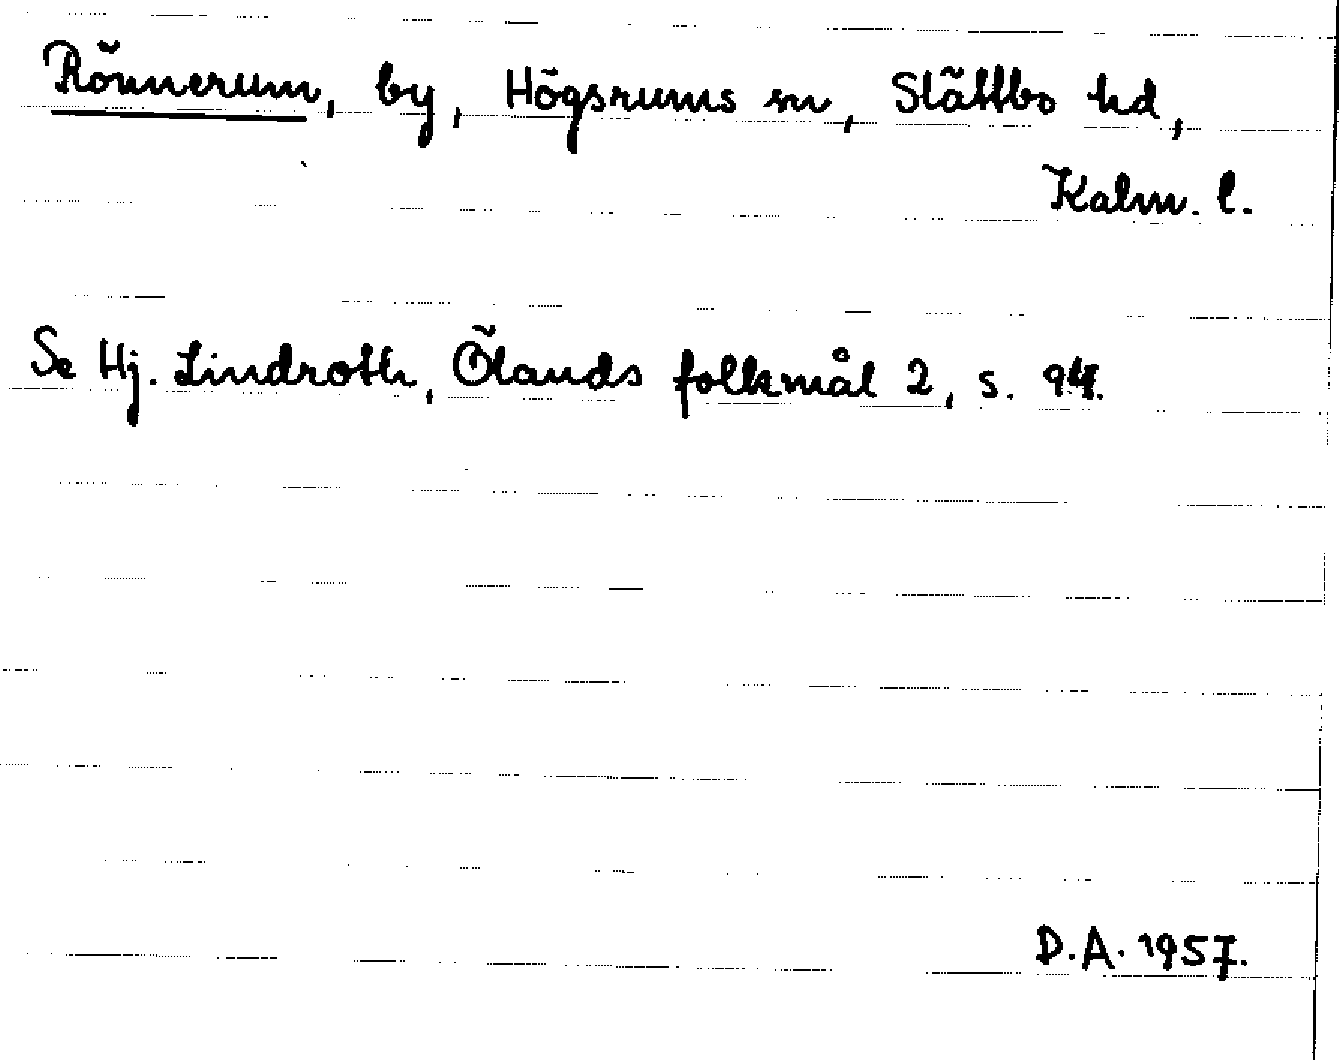 Rönnerum, by, Högsrums sn, Slättbo hd,
Kalm. l.
Se Hj. Lindroth, Ölands folkmål 2, s. 94.
D.A. 1957.